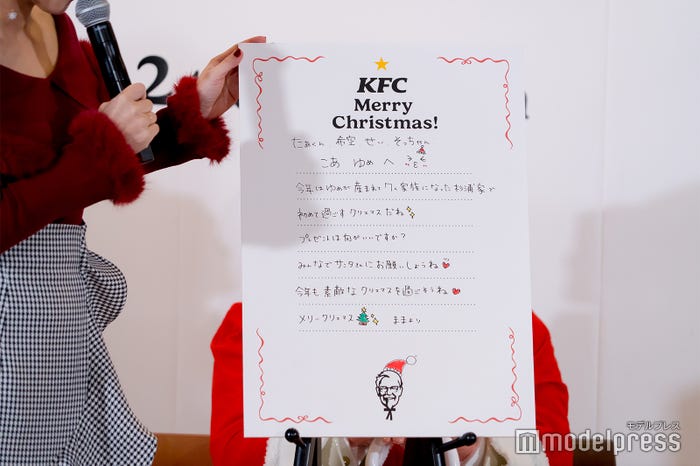 KFC
Merry
Christmas!
たぁくん 希空 せい そっちゃん
こあ ゆめ へ
今年はゆめが産まれて 家族になった杉浦家で
初めて過ごすクリスマスだね
プレゼントは何がいいですか?
みんなでサンタさんにお願いしようね
今年も素敵なクリスマスを過ごそうね
メリークリスマス ままより
モデルプレス
modelpress